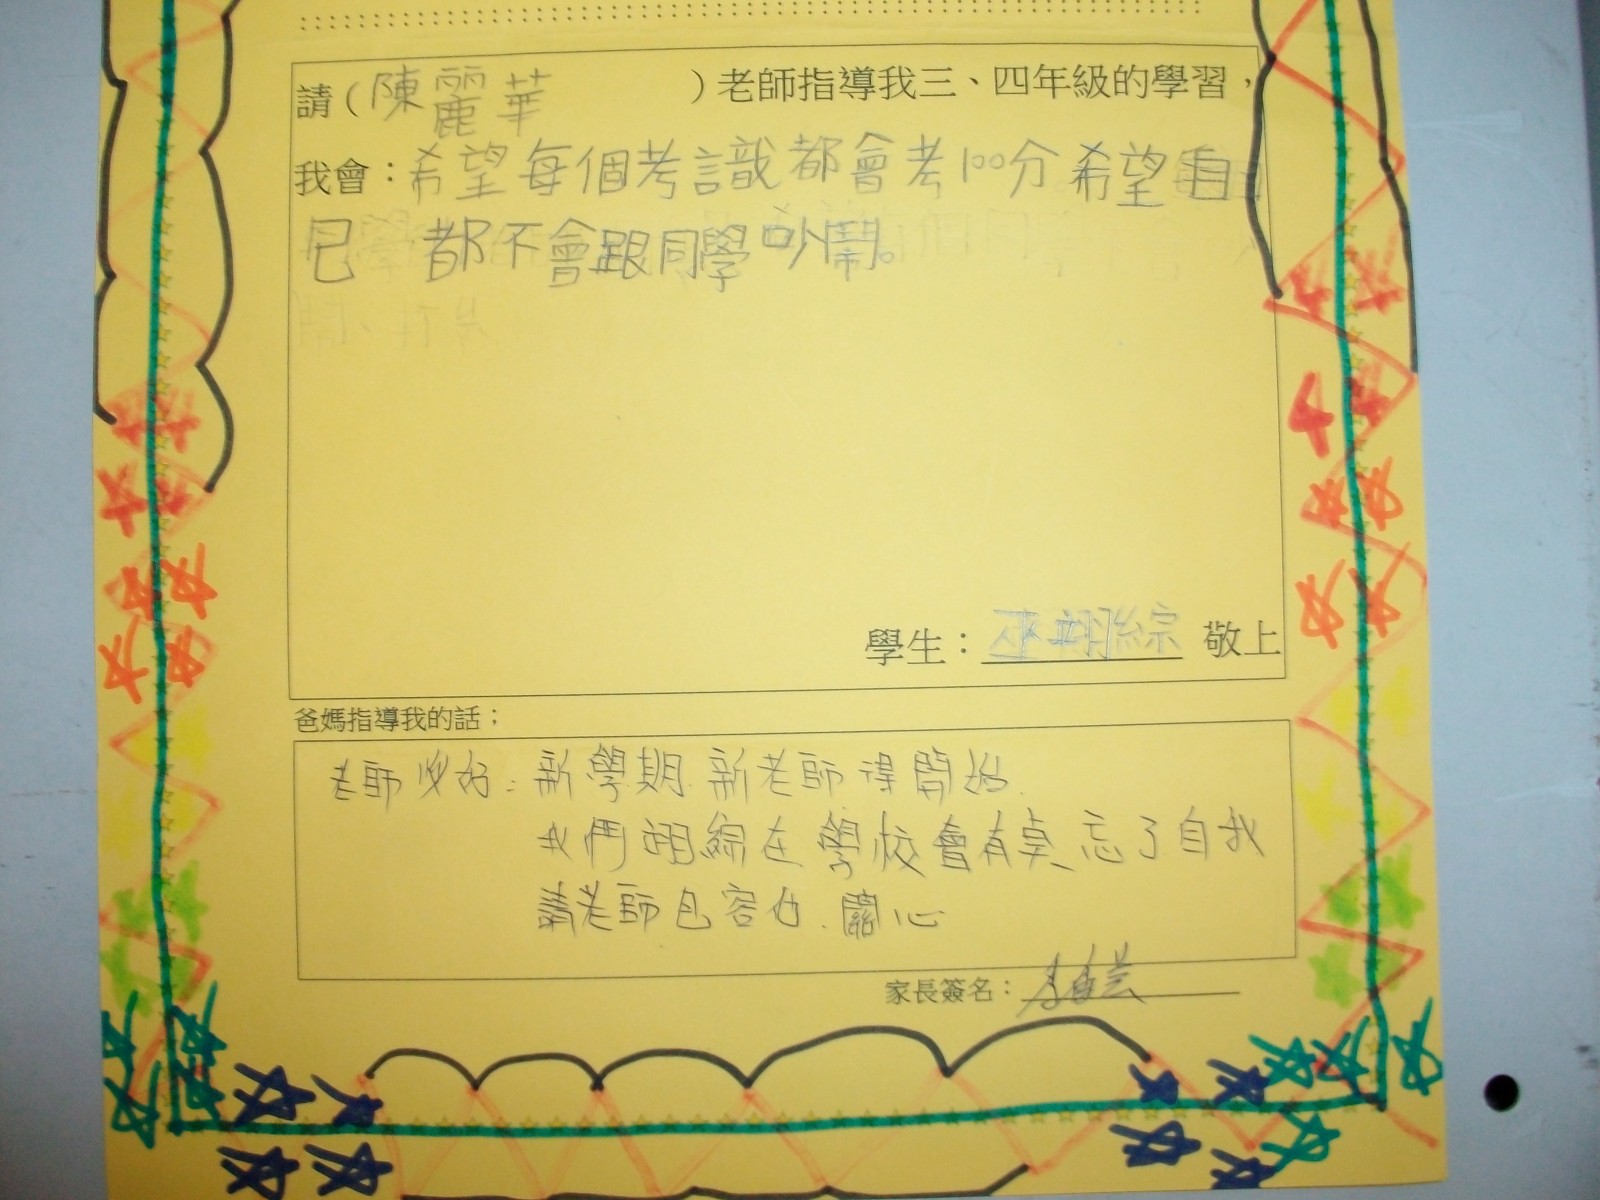 請（陳麗華）老師指導我三、四年級的學習，
我會：希望每個考識都會考100分希望自
己 都不會跟同學吵鬧。
學生：巫翊綜 敬上
爸媽指導我的話；
老師 好：新學期.新老師得開始.
我們翊綜在學校會有臭忘了自我
請老師包容他.關心
家長簽名：